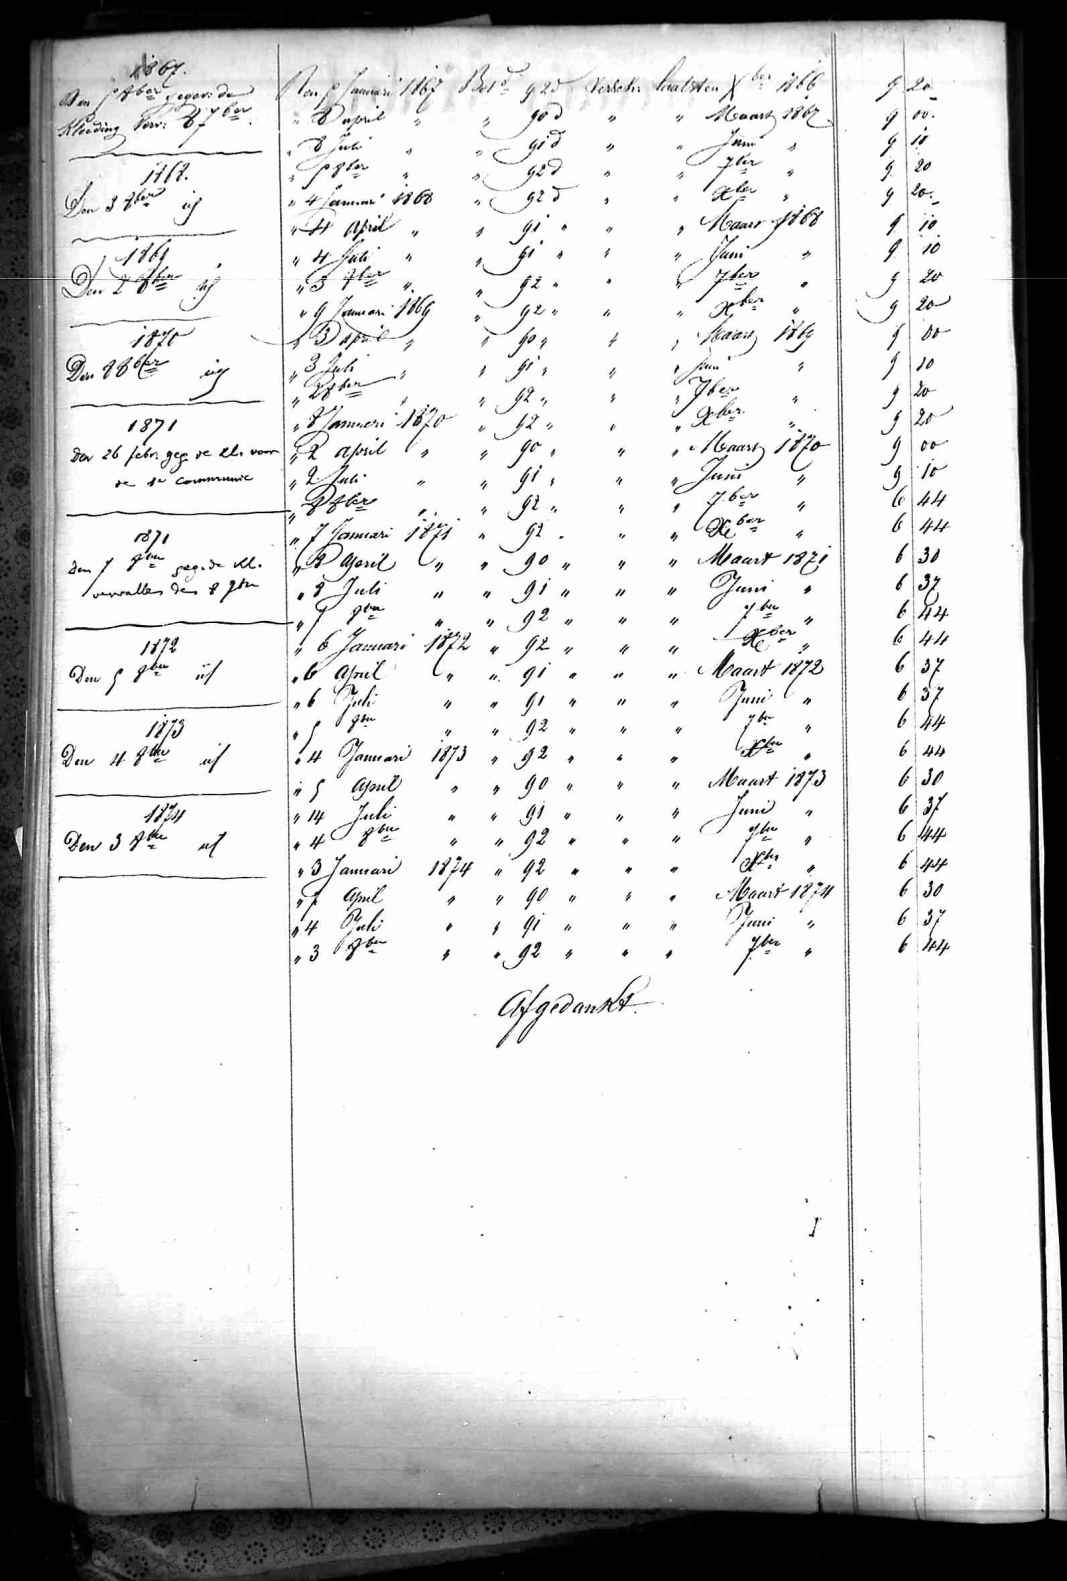 1867.
Den 5 8ber gegev: de
kleeding verv: 8 7ber
1868.
Den 3 8ber id
1869
Den 2 8ber id
1870
Den 8 8ber id
1871
den 26 febr. geg de kl. voor
de 1e communie
1871
den 7 8ber geg. de kl.
vervallen den 8 8ber
1872
Den 5 8ber id
1873
Den 4 8ber id
1874
Den 3 8ber id
Den 5 Januari 1867 Betd 92 d verstr: laatsten Xber 1866 9 20
" 8 april " " 90 d " " Maart 1867 9 00.
" 8 Juli " " 91 d " " Juni " 9 10
" 5 8ber " " 92 d " " 7ber " 9 20
" 4 Januari 1868 " 92 d " " Xber " 9 20.
" 4 April " " 91 " " " Maart 1868 9 10
" 4 Juli " " 91 " " " Juni " 9 10
" 3 8ber " " 92 " " " 7ber " 9 20
" 9 Januari 1869 " 92 " " " Xber " 9 20
" 3 april " " 90 " " " Maart 1869 9 00
" 3 Juli " " 91 " " " Juni " 9 10
" 2 8ber " " 92 " " " 7ber " 9 20
" 8 Januari 1870 " 92 " " " Xber " 9 20
" 2 april " " 90 " " " Maart 1870 9 00
" 2 Juli " " 91 " " " Juni " 9 10
" 8 8ber " " 92 " " " 7ber " 6 44
" 7 Januari 1871 " 92 " " " Xber " 6 44
" 2 April " " 90 " " " Maart 1871 6 30
" 8 Juli " " 91 " " " Juni " 6 37
" 7 8ber " " 92 " " " 7ber " 6 44
" 6 Januari 1872 " 92 " " " Xber " 6 44
" 6 April " " 91 " " " Maart 1872 6 37
" 6 Juli " " 91 " " " Juni " 6 37
" 5 8ber " " 92 " " " 7ber " 6 44
" 4 Januari 1873 " 92 " " " Xber " 6 44
" 5 April " " 90 " " " Maart 1873 6 30
" 14 Juli " " 91 " " " Juni " 6 37
" 4 8ber " " 92 " " " 7ber " 6 44
" 3 Januari 1874 " 92 " " " Xber " 6 44
" 7 April " " 90 " " " Maart 1874 6 30
" 4 Juli " " 91 " " " Juni " 6 37
" 3 8ber " " 92 " " " 7ber " 6 44
Afgedankt.